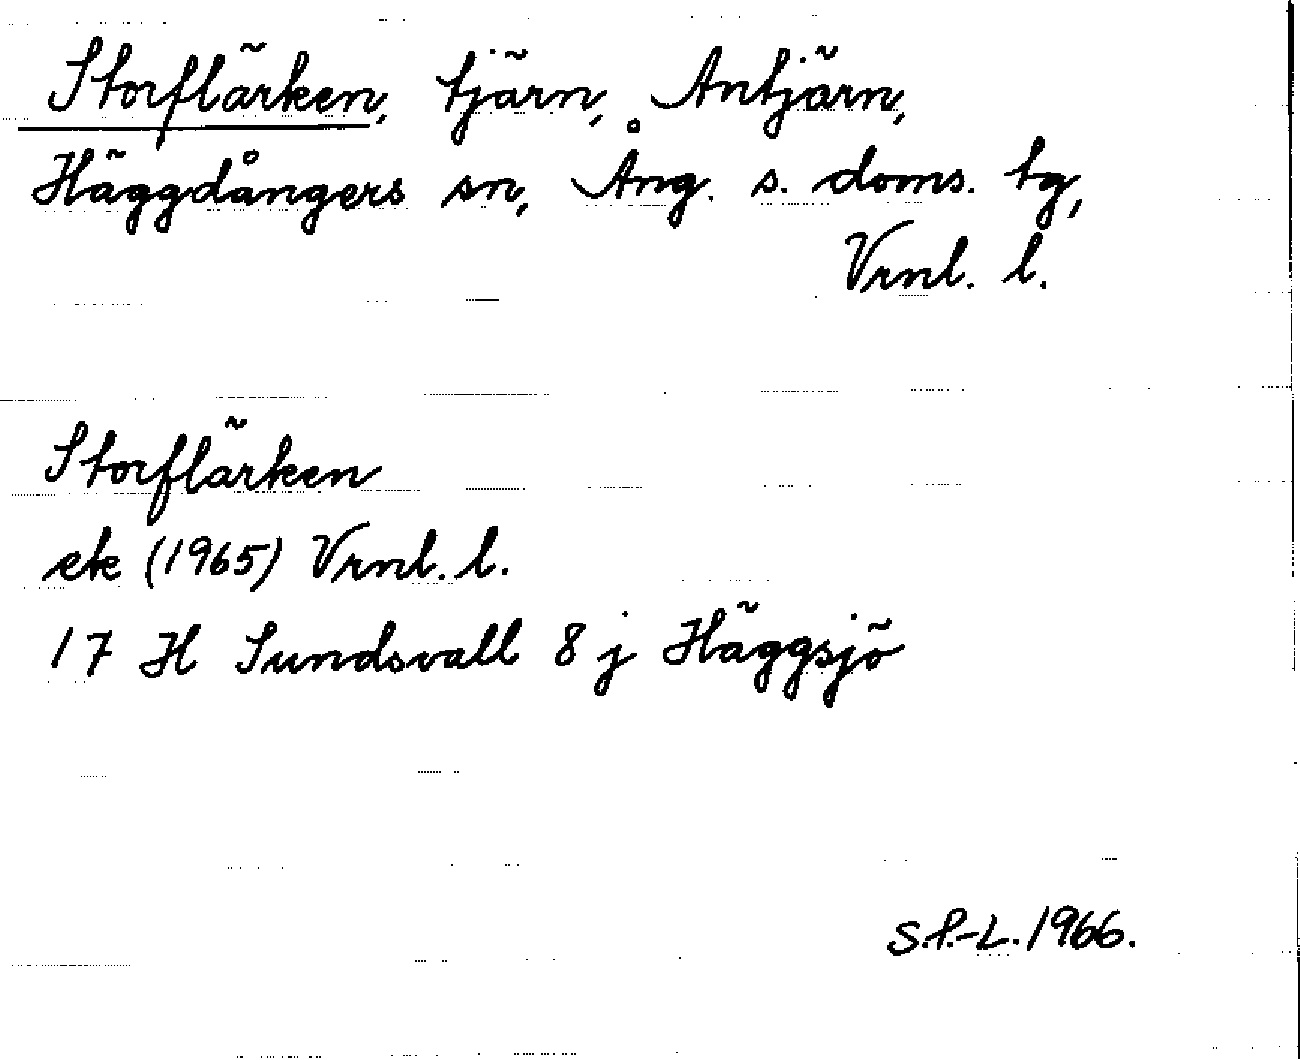 Storflärken, tjärn, Antjärn,
Häggdångers sn, Ång. s. doms. tg,
Vrnl. l.
Storflärken
ek (1965) Vrnl. l.
17 H Sundsvall 8 j Häggsjö
S.P.-L. 1966.